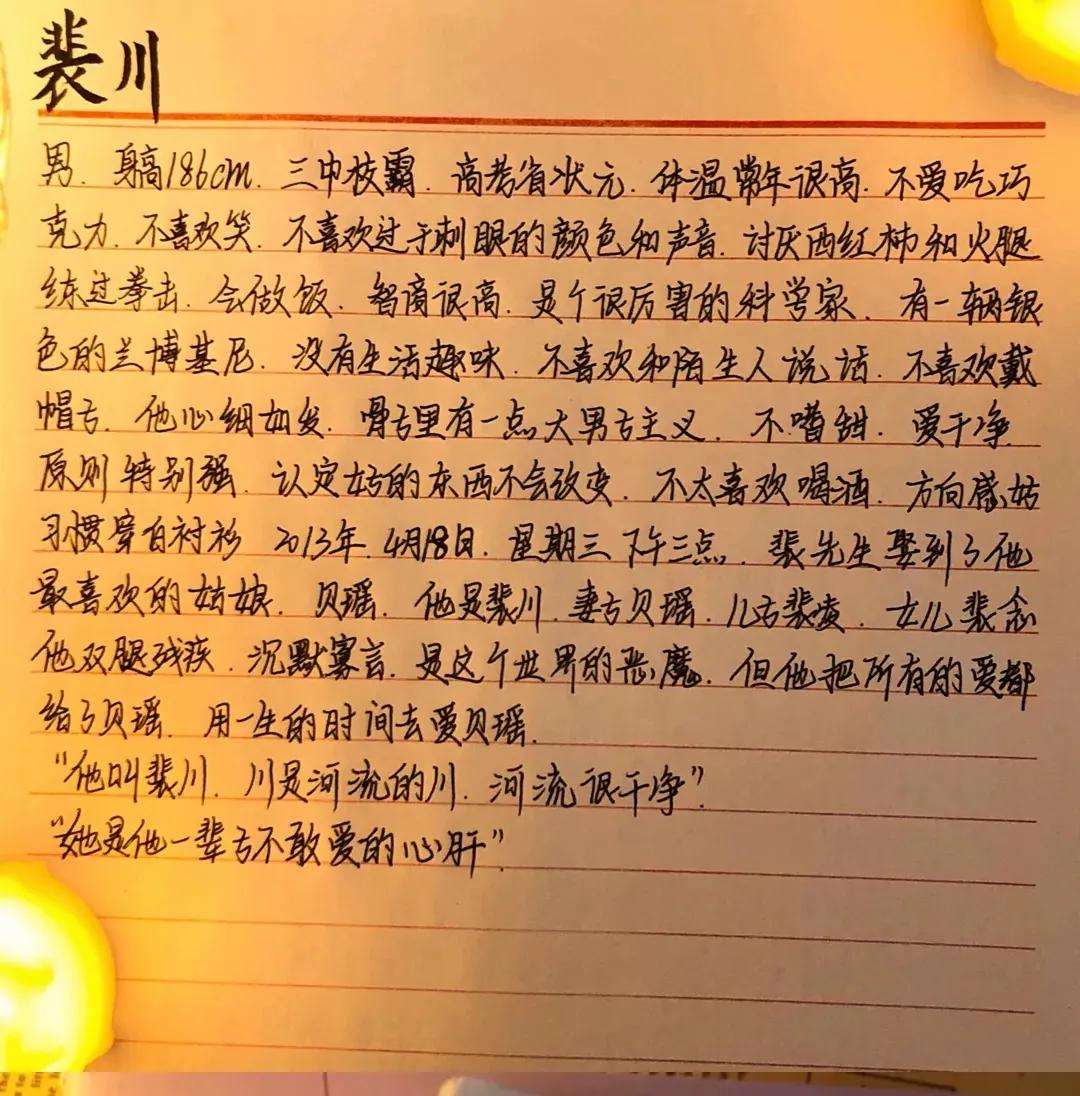 裴川
男. 身高186cm. 三中校霸. 高考省状元. 体温常年很高. 不爱吃巧
克力. 不喜欢笑. 不喜欢过于刺眼的颜色和声音. 讨厌西红柿和火腿
练过拳击. 会做饭. 智商很高. 是个很厉害的科学家. 有一辆银
色的兰博基尼. 没有生活趣味. 不喜欢和陌生人说话. 不喜欢戴
帽子. 他心细如发. 骨子里有一点大男子主义. 不嗜甜. 爱干净
原则特别强. 认定姑的东西不会改变. 不太喜欢喝酒. 方向感姑
习惯穿白衬衫 2013年. 4月18日. 星期三下午三点. 裴先生娶到了他
最喜欢的姑娘. 贝瑶. 他是裴川. 妻子贝瑶. 儿子裴凌. 女儿裴念
他双腿残疾. 沉默寡言. 是这个世界的恶魔. 但他把所有的爱都
给了贝瑶. 用一生的时间去爱贝瑶.
“他叫裴川. 川是河流的川. 河流很干净”.
“她是他一辈子不敢爱的心肝”.